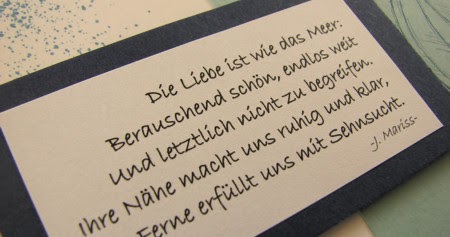 Die Liebe ist wie das Meer:
Berauschend schön, endlos weit
Und letztlich nicht zu begreifen.
Ihre Nähe macht uns ruhig und klar,
Ferne erfüllt uns mit Sehnsucht.
-J. Mariss-